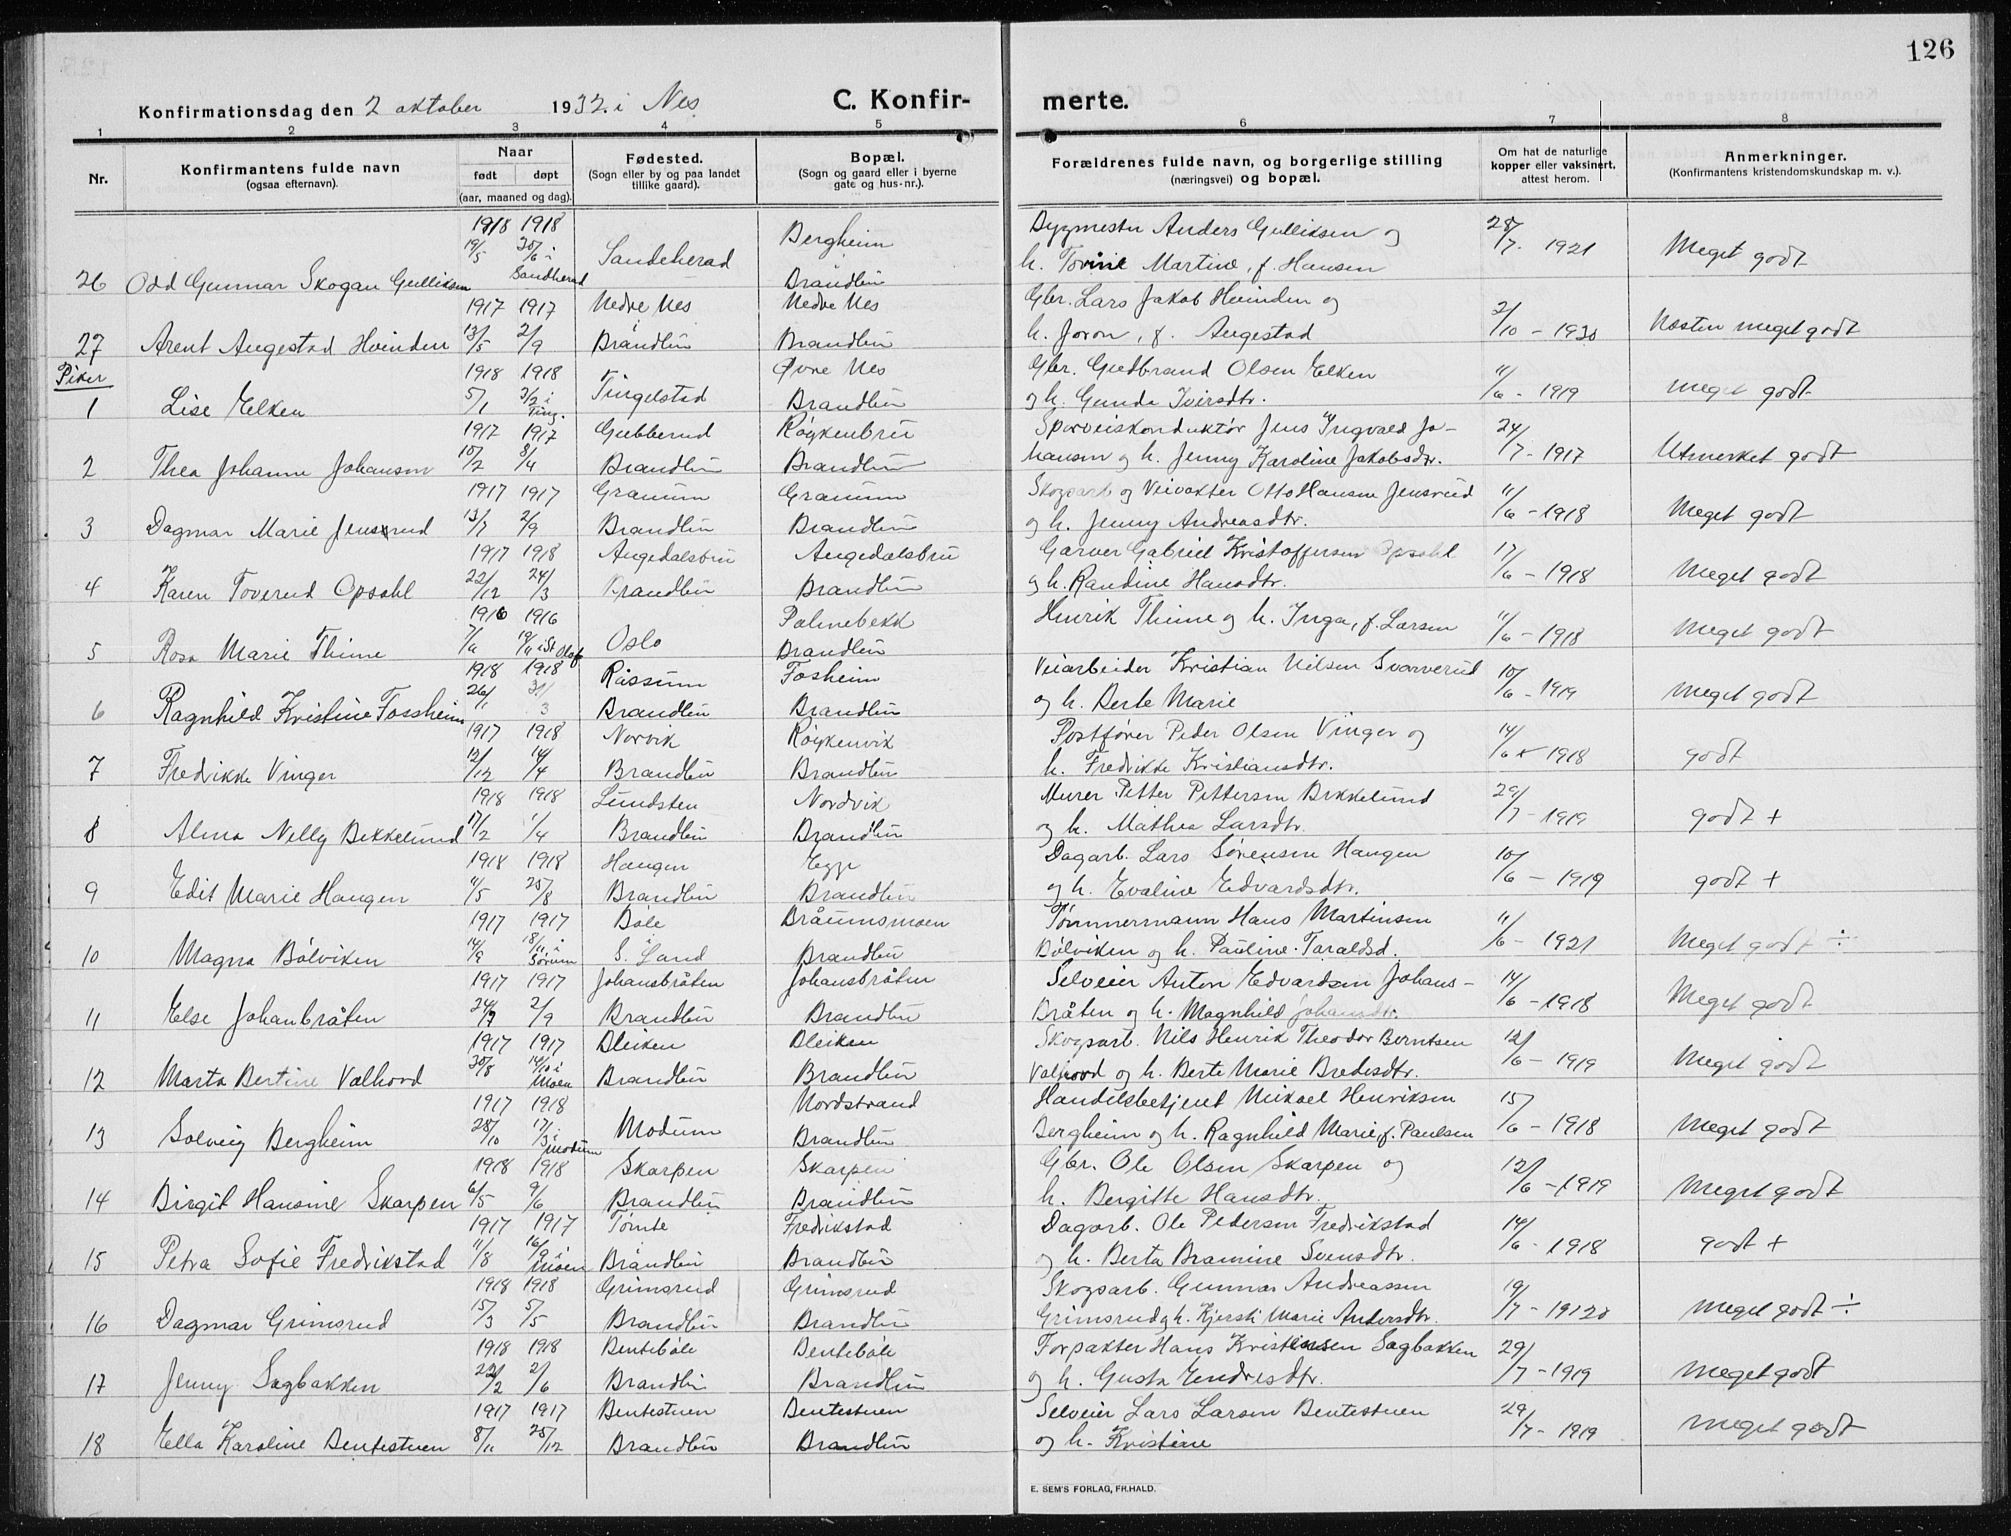 126
Konfirmationsdag den 2 oktober 1932. i Nes C. Konfir- merte.
1 2 3 4 5 6 7 8
Nr. Konfirmantens fulde navn (ogsaa efternavn). Naar født døpt (aar, maaned og dag). Fødested. (Sogn eller by og paa landet tillike gaard). Bopæl. (Sogn og gaard eller i byerne gate og hus-nr.). Forældrenes fulde navn, og borgerlige stilling (næringsvei) og bopæl. Om hat de naturlige kopper eller vaksinert. attest herom. Anmerkninger. (Konfirmantens kristendomskundskap m. v.).
1918 1918 Bergheim Anders Gulliksen og 28/7 - 1921
26 Odd Gunnar Skogan Gulliksen 19/5 30/6 i Sandherad Sandeherad Brandbu h. Martine, f. Hansen Meget godt
1917 1917 Nedre Nes Nedre Nes Gbr. Lars Jakob Hvinden og
27 Arent Augestad Hvinden 13/5 2/9 Brandbu Brandbu h. Joron, f. Augestad 2/10 - 1930 Næsten meget godt
Piker
1918 1918 Tingelstad Øvre Nes Gbr. Gudbrand Olsen Elken
1 Lise Elken 5/1 3/2 i Ting. Brandbu og h. Gunda Iversdtr. 11/6 - 1919 meget godt
1917 1917 Gubberud Røykenbru Sporveiskonduktør Jens Ingvald Jo-
2 Thea Johanne Johansen 10/2 8/4 Brandbu Brandbu hansen og h. Jenny Karoline Jakobsdtr. 24/7 - 1917 Utmerket godt
1917 1917 Granum Granum Skogsarb og Veivokter Otto Hansen Jensrud
3 Dagmar Marie Jensrud 13/7 2/9 Brandbu Brandbu og h. Jenny Andreasdtr. 11/6 - 1918 Meget godt
1917 1918 Augedalsbru Augedalsbru Garver Gabriel Kristoffersen Opsahl
4 Karen Toverud Opsahl 22/12 24/3 Brandbu Brandbu og h. Randine Hansdtr. 17/6 - 1918 Meget godt
1916 1916 Palmebekk Henrik Thime og h. Inga, f. Larsen
5 Rosa Marie Thime i St Olaf Oslo Brandbu 11/6 - 1918 Meget godt
1918 1918 Røssum Fosheim Veiarbeider Kristian Nilsen Svarverud
6 Ragnhild Kristine Fossheim 26/1 31/3 Brandbu Brandbu og h. Berte Marie 10/6 - 1919 Meget godt
1917 1918 Norvik Røykenvik Postfører Peder Olsen Vinger og
7 Fredrikke Vinger 12/12 14/4 Brandbu Brandbu h. Fredrikke Kristiansdtr. 14/6 - 1918 godt
1918 1918 Lundsten Nordvik Murer Petter Pettersen Bekkelund
8 Alma Nelly Bekkelund 17/2 1/4 Brandbu Brandbu og h. Mathea Larsdtr. 29/7 - 1919 godt +
1918 1918 Haugen Egge Dagarb. Lars Sørensen Haugen
9 Edit Marie Haugen 11/5 25/8 Brandbu Brandbu og h. Evaline Edvardsdtr. 10/6 - 1919 godt +
1917 1917 Dale Bråumsmoen Tømmermann Hans Martinsen
10 Magna Bølviken 14/9 18/11 i Sørum S. Land Brandbu Bølviken og h. Pauline Taraldsd. 11/6 - 1921 Meget godt ÷
1917 1917 Johansbråten Johansbråten Selveier Anton Edvardsen Johans-
11 Else Johanbråten 24/7 2/9 Brandbu Brandbu Bråten og h. Magnhild Johansdtr. 14/6 - 1918 Meget godt
1917 1917 Bleiken Bleiken Skogsarb. Nils Henrik Theodor Berntsen
12 Marta Bertine Valhovd 30/8 14/10 i Moen Brandbu Brandbu Valhovd og h. Berte Marie Bredesdtr. 12/6 - 1919 Meget godt
1917 1918 Nordstrand Handelsbetjent Mikael Henriksen
13 Solveig Bergheim 28/10 17/3 i Modum Modum Brandbu Bergheim og h. Ragnhild Marie, f. Paulsen 15/6 - 1918 Meget godt
1918 1918 Skarpen Skarpen Gbr. Ole Olsen Skarpen og
14 Birgit Hansine Skarpen 6/5 9/6 Brandbu Brandbu h. Bergitte Hansdtr. 12/6 - 1919 Meget godt
1917 1917 Tømte Fredrikstad Dagarb. Ole Pedersen Fredrikstad
15 Petra Sofie Fredrikstad 11/8 16/9 i Moen Brandbu Brandbu og h. Berta Bramine Svensdtr. 14/6 - 1918 godt +
1918 1918 Grimsrud Grimsrud Skogsarb. Gunnar Andreassen
16 Dagmar Grimsrud 15/3 5/5 Brandbu Brandbu Grimsrud og h. Kjersti Marie Andersdtr. 19/7 - 1920 Meget godt ÷
1918 1918 Bentebøle Bentebøle Forpakter Hans Kristensen Sagbakken
17 Jenny Sagbakken 22/2 2/6 Brandbu Brandbu og h. Gusta Endresdtr. 29/7 - 1919 Meget godt
1917 1917 Bentestuen Bentestuen Selveier Lars Larsen Bentestuen
18 Ella Karoline Bentestuen 8/11 25/12 Brandbu Brandbu og h. Kristine 29/7 - 1919 Meget godt
E. SEM'S FORLAG, FR.HALD.